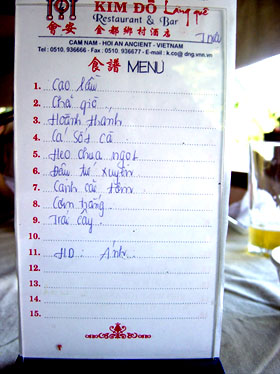 KIM ĐÔ Làng quê
Restaurant & Bar
會安 金都鄉村酒店
CAM NAM - HOI AN ANCIENT - VIETNAM
Tel : 0510. 936666 - Fax : 0510. 936677 - E-mail : k.co@ dng.vnn.vn
食譜 MENU
1. Cao lầu
2. Chả giò
3. Hoành thánh
4. Cá sốt cà
5. Heo chua ngọt
6. Đậu tứ xuyên
7. Canh cải tôm
8. Cơm trắng
9. Trái cây
10.
11. HD: Ánh
12.
13.
14.
15.